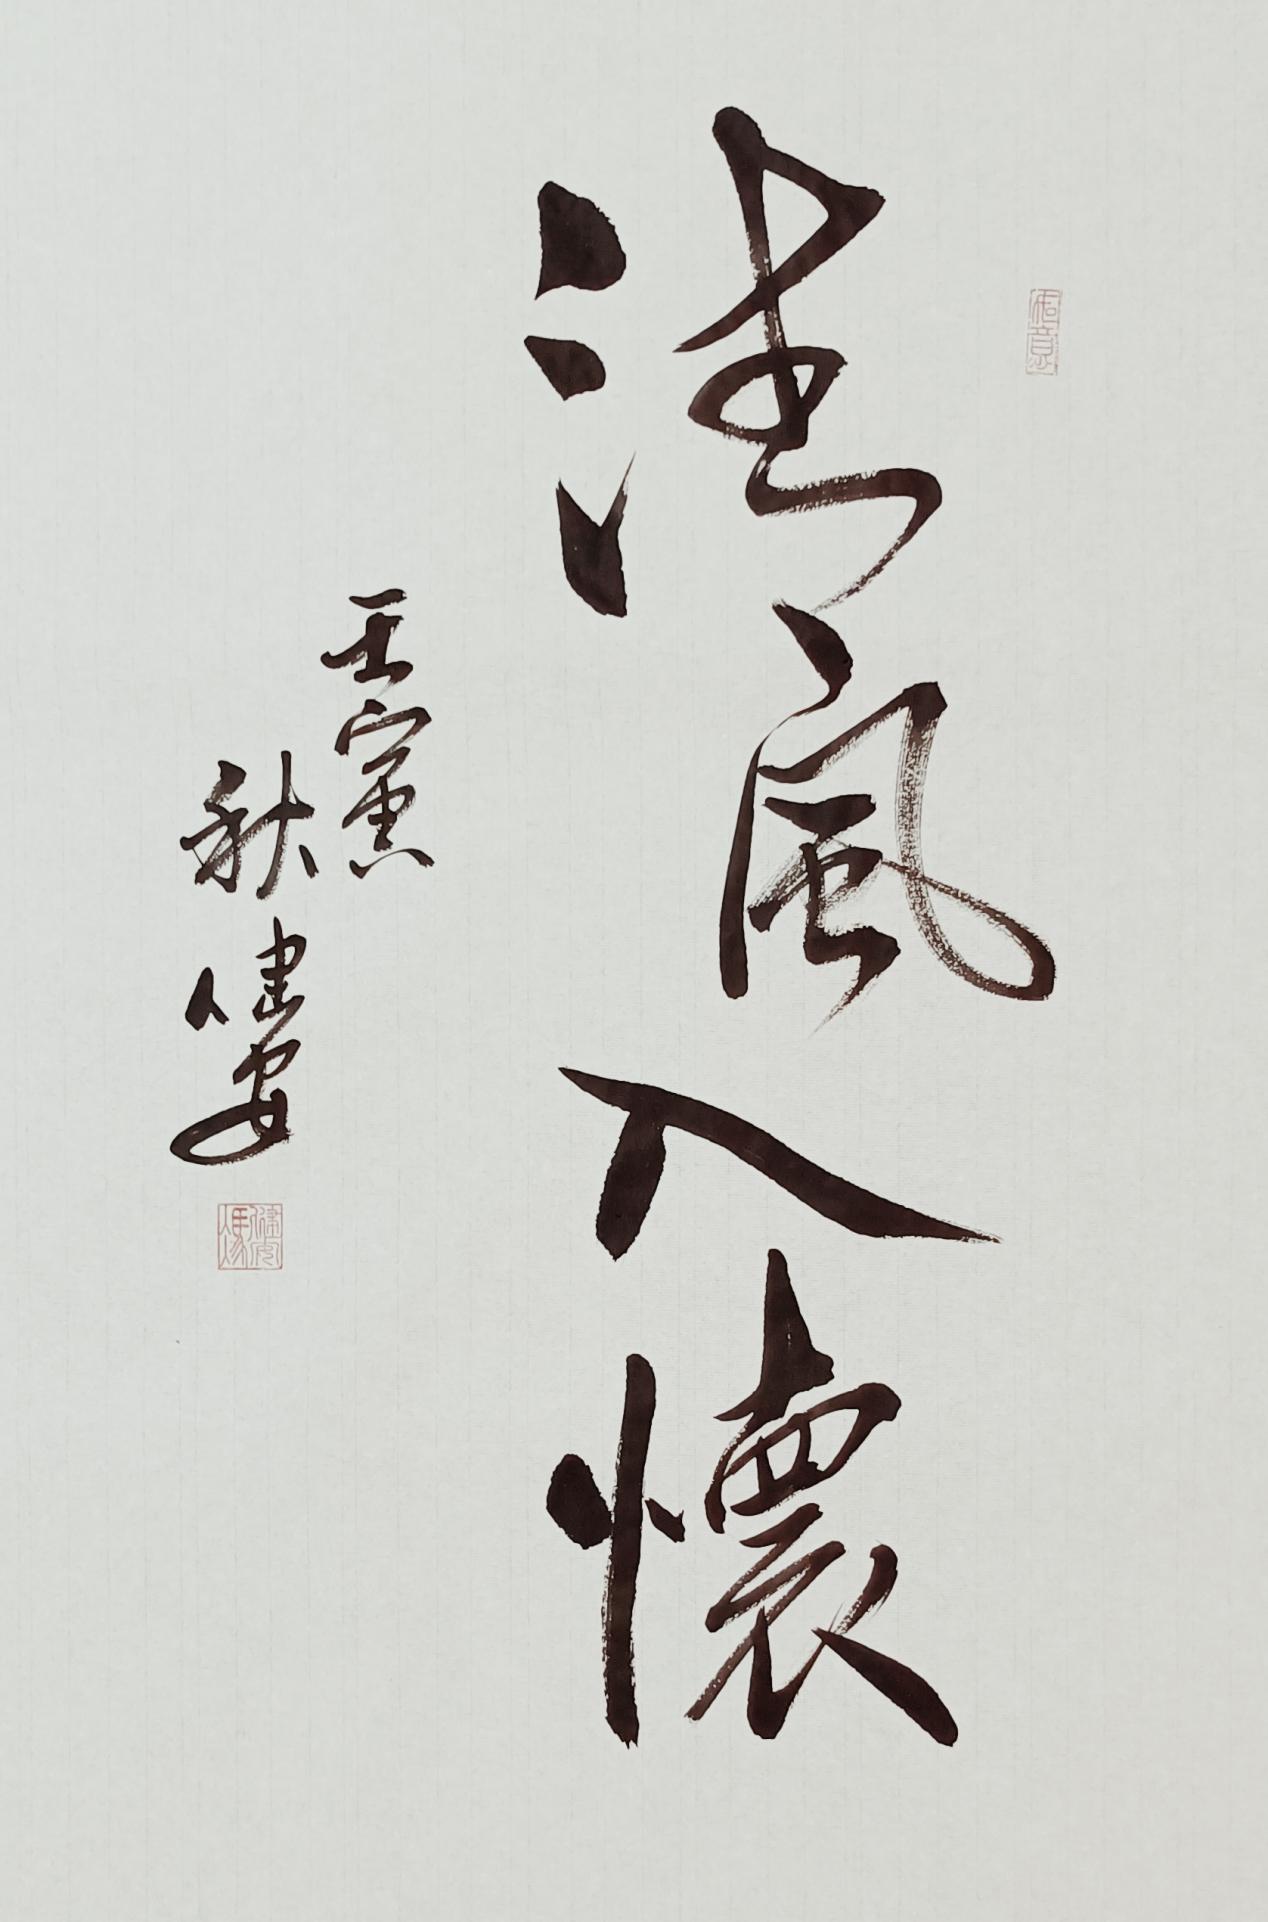 清風入懷
壬寅
秋健安